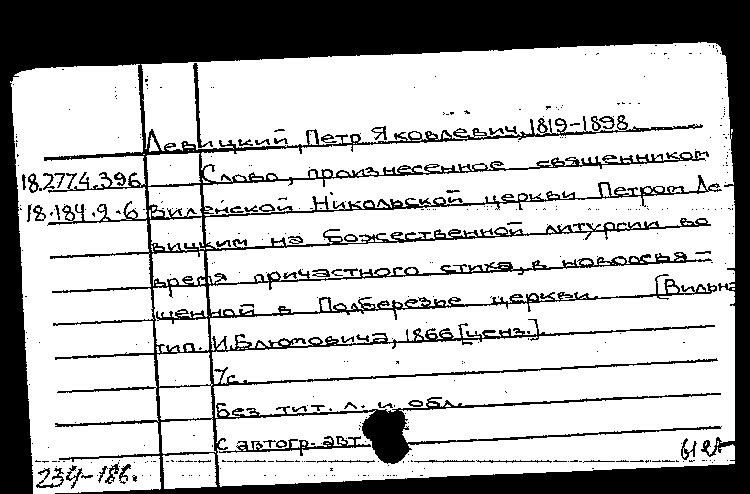 Левицкий, Петр Яковлевич, 1819-1898.
18.277.4.396 Слово, произнесенное священником
18.184.2.6 Виленской Никольской церкви Петром Ле-
вицким на божественной литургии во
время причастного стиха, в новоосвя-
щенной в Подберезье церкви. [Вильна
тип. И.Блюмовича, 1866 [ценз.].
7с.
Без тит. л. и обл.
С автогр. авт
234-186.